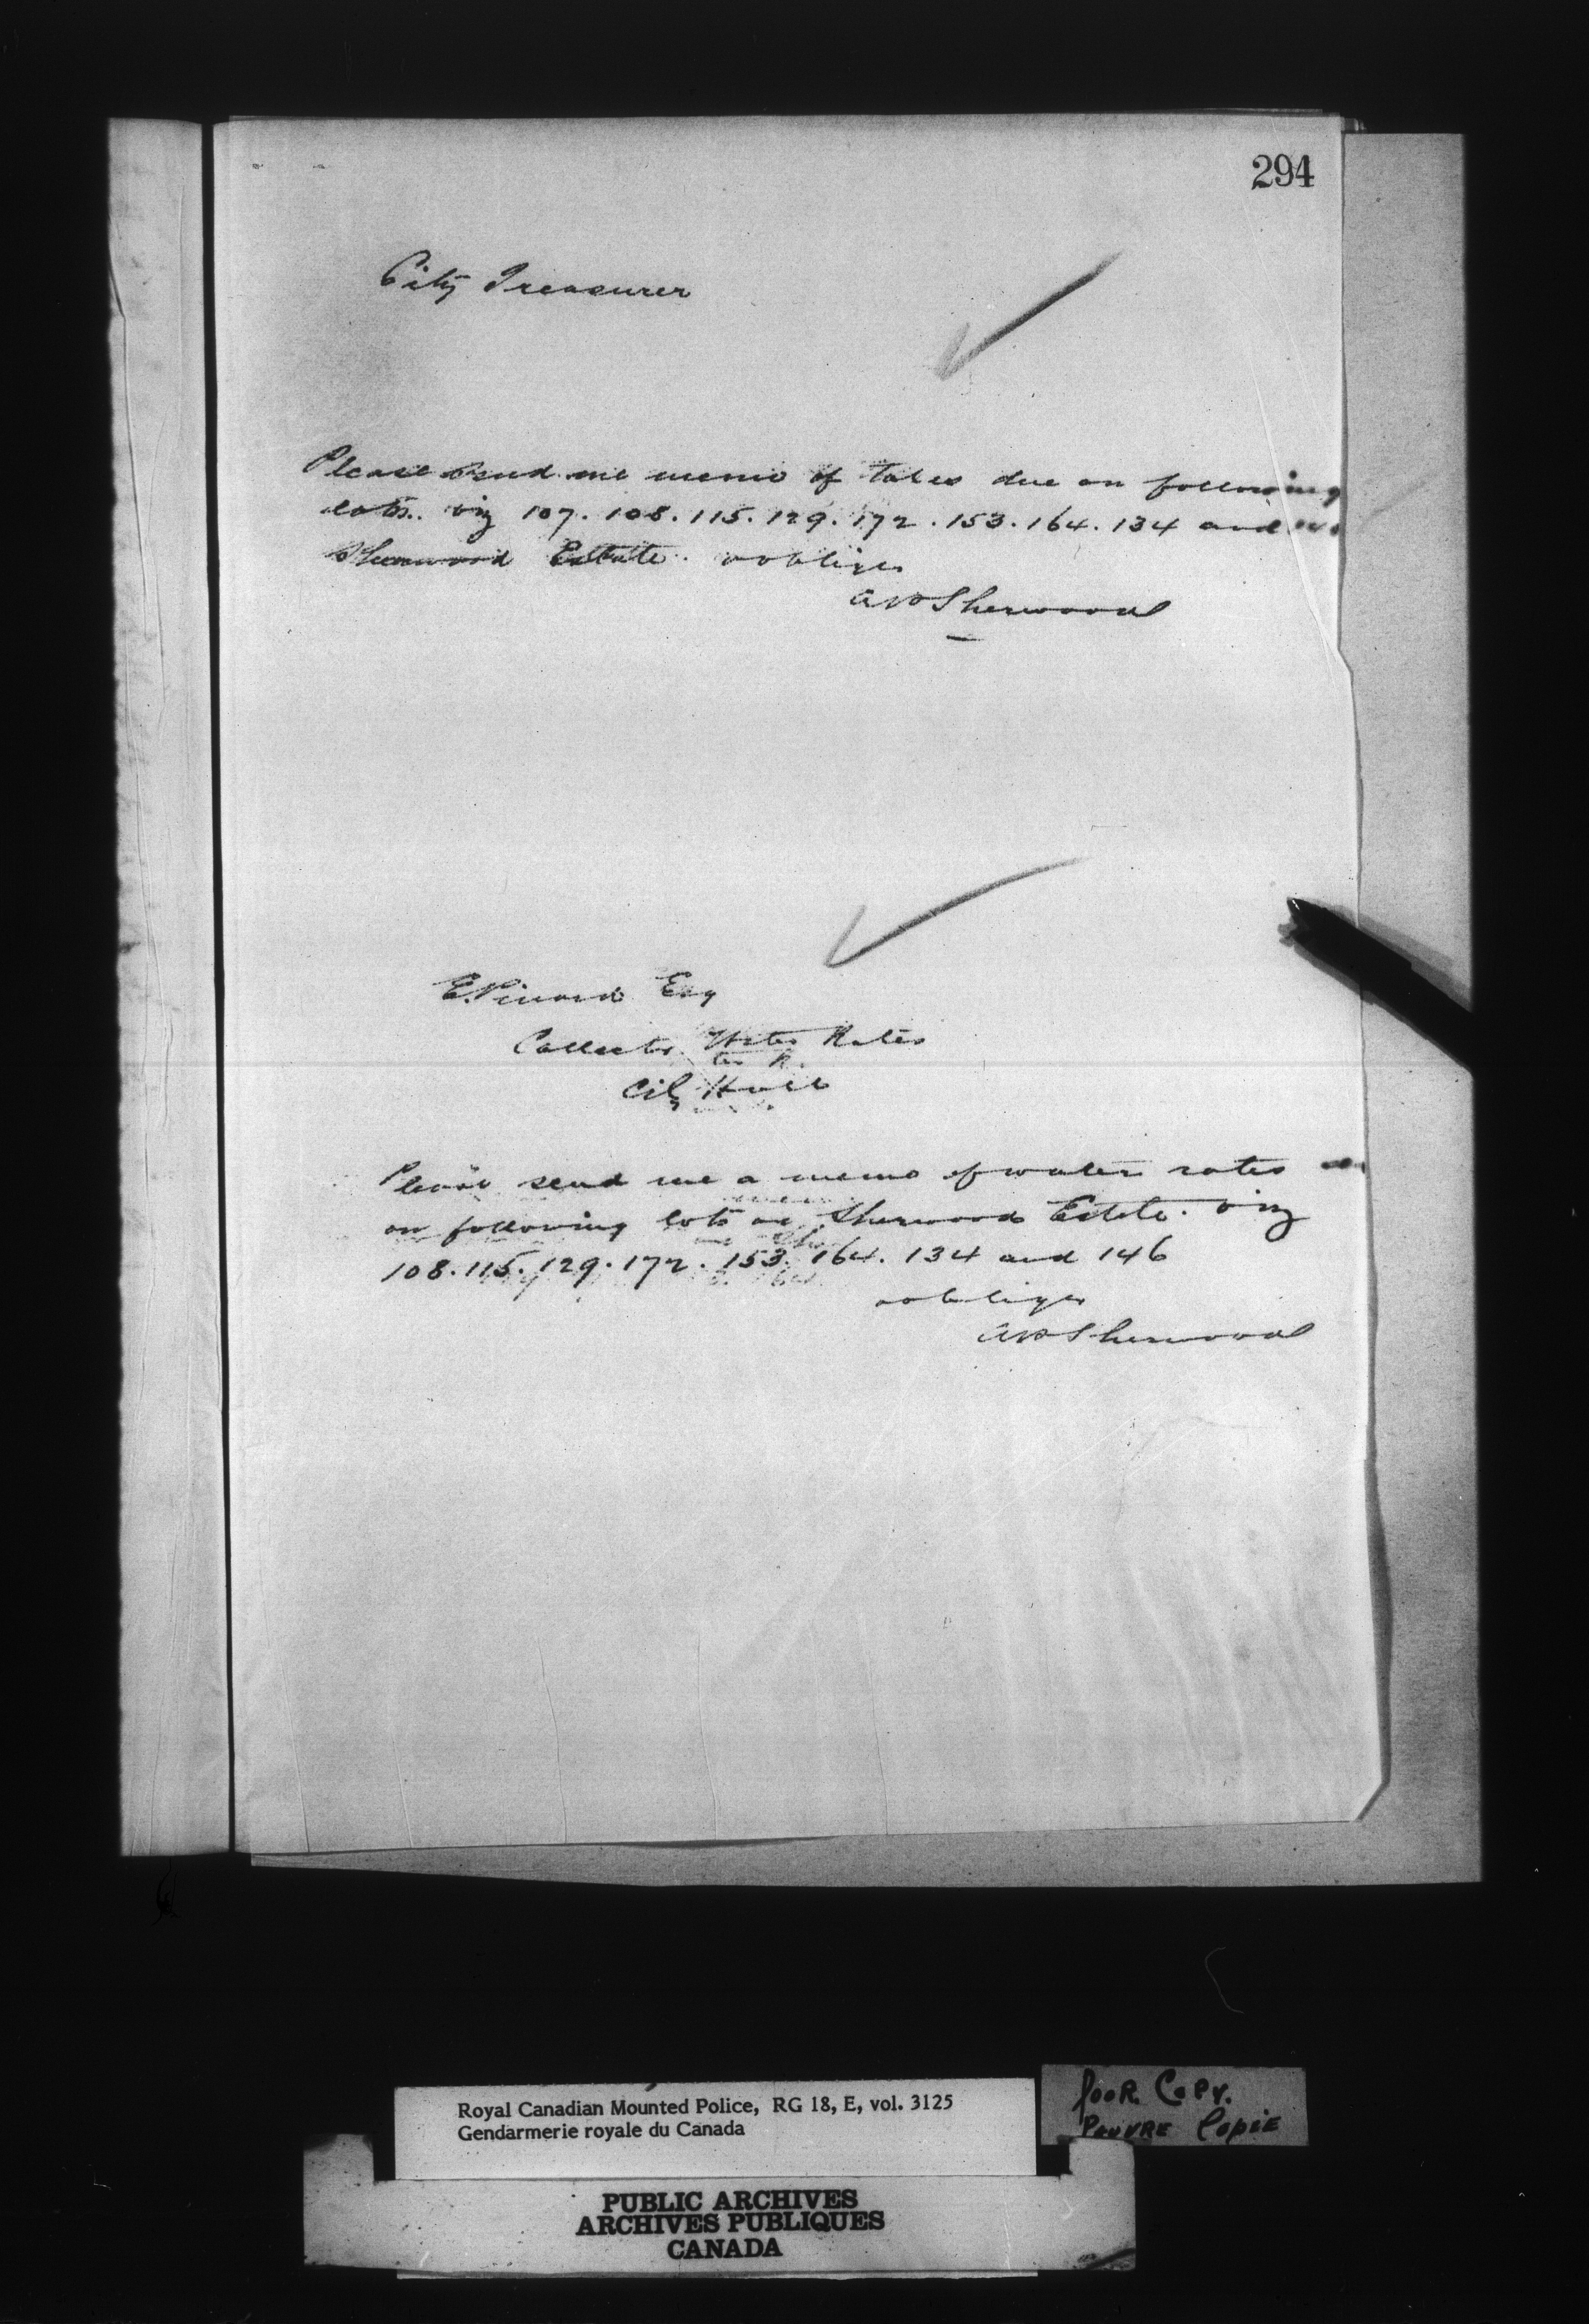 294
City Treasurer
Please send me memo of taxes due on following
lots. viz 107. 108. 115. 129. 172. 153. 164. 134 and
Sherwood Estate. & oblige
AP Sherwood
E. Pinard Esq
Collector Water Rates
City Hall
Please send me a memo of water rates
on following lots on Sherwood Estate. viz
108. 115. 129. 172. 153. 164. 134 and 146
& oblige
AP Sherwood
Royal Canadian Mounted Police, RG 18, E, vol. 3125
Gendarmerie royale du Canada
POOR COPY.
PAUVRE COPIE
PUBLIC ARCHIVES
ARCHIVES PUBLIQUES
CANADA